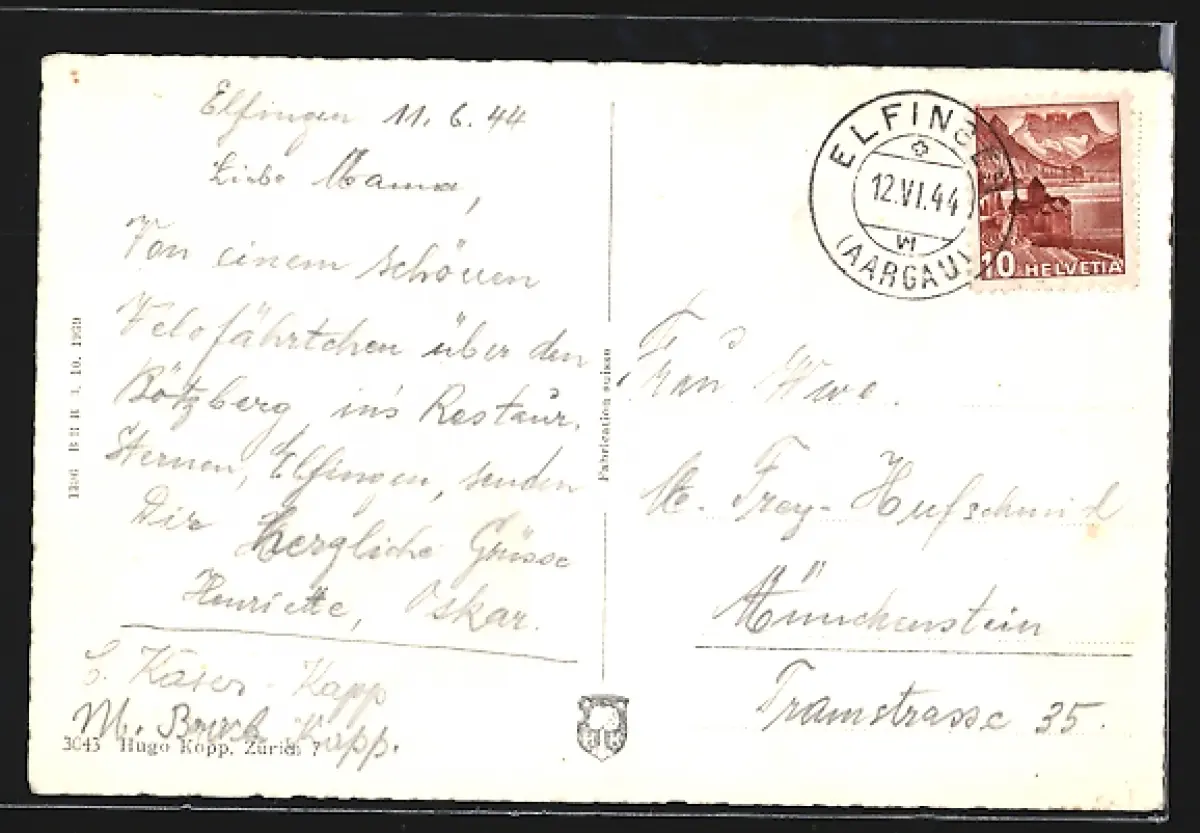 Elfingen 11. 6. 44
Liebe Mama,
Von einem schönen
Velofährtchen über den
Bötzberg, in's Restaur.
Sternen, Elfingen, senden
Dir herzliche Grüsse
Henriette, Oskar.
Käser-Kapp
M. Kapp.
3043 Hugo Kopp, Zürich 7
10. 1939
Fabrication suisse
ELFINGEN
12.VI.44
(AARGAU)
10 HELVETIA
Frau Wwe.
M. Frey-Hufschmid
Münchenstein
Tramstrasse 35.